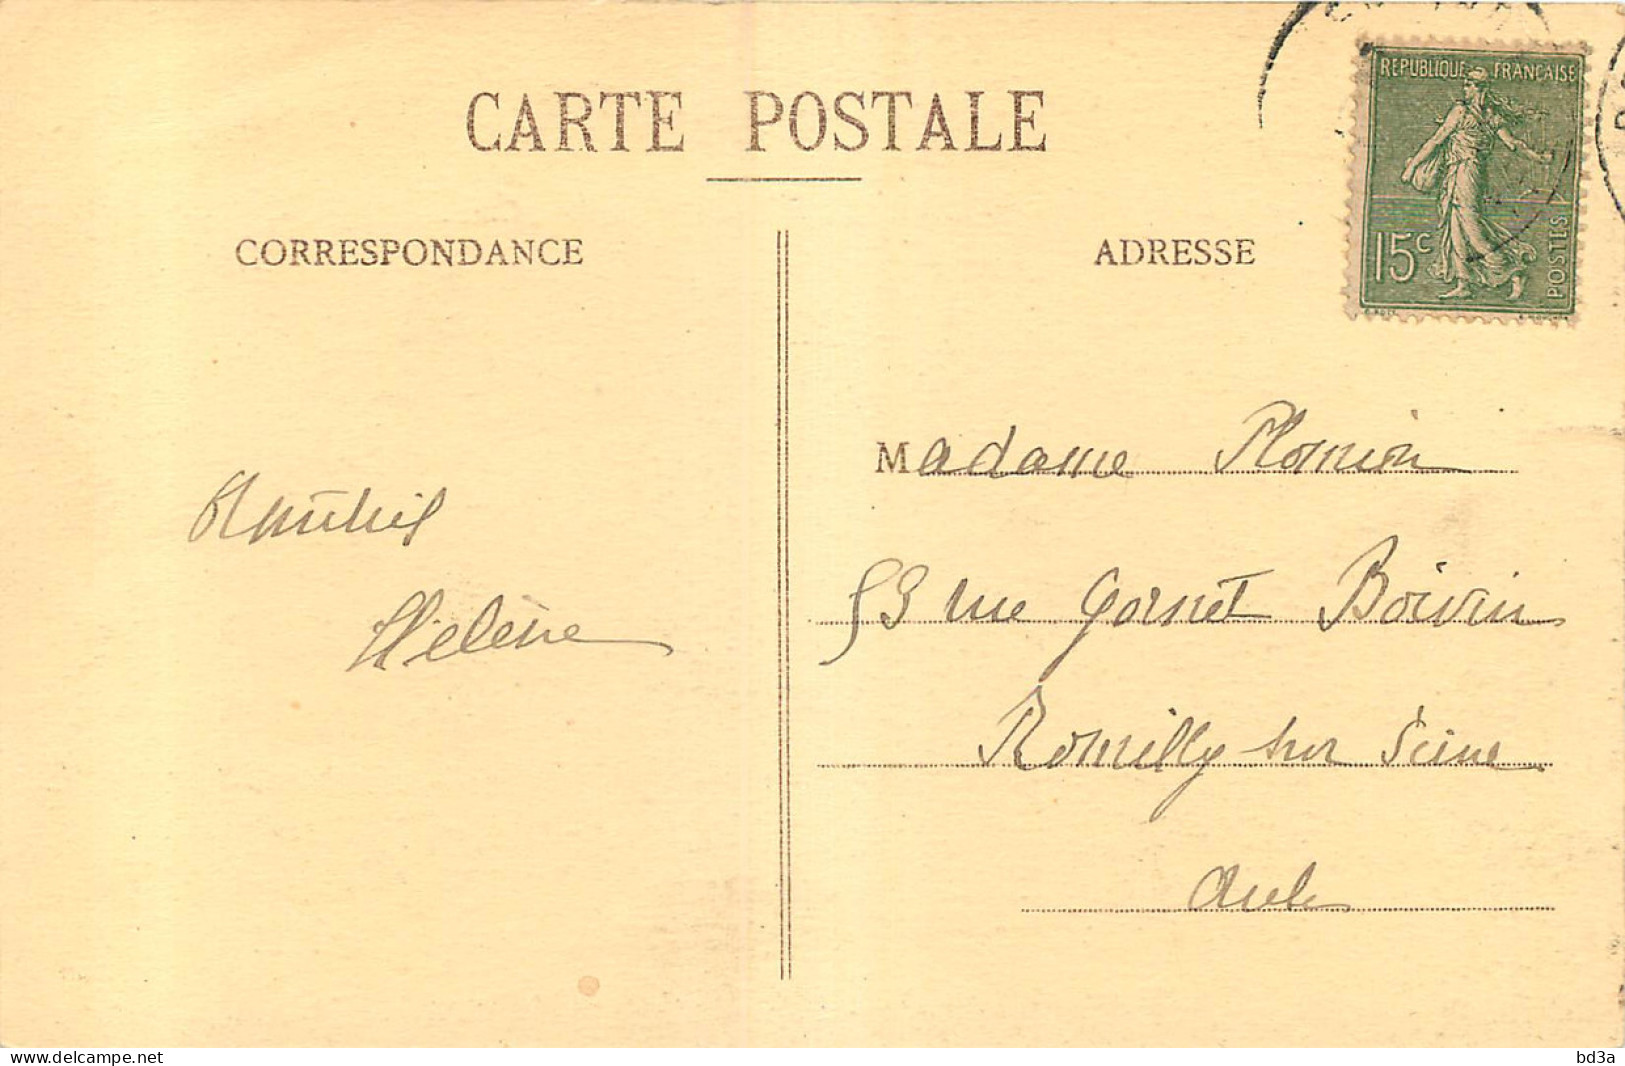 CARTE POSTALE
CORRESPONDANCE
ADRESSE
REPUBLIQUE FRANCAISE
15c
POSTES
Amitiés
Hélène
Madame Plomion
53 rue Gornet Boivin
Romilly sur Seine
Aube
www.delcampe.net
bd3a